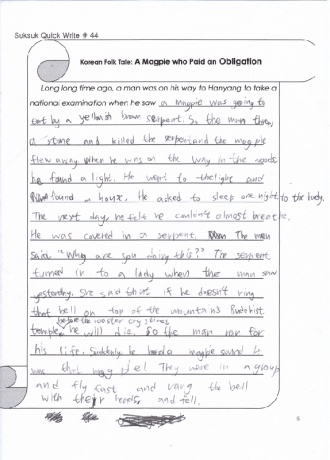 Suksuk Quick Write # 44
Korean Folk Tale: A Magpie who Paid an Obligation
Long long time ago, a man was on his way to Hanyang to take a
national examination when he saw a magpie was going to
eat by a yellowish brown serpent. So the man threw
a stone and killed the serpent and the magpie
flew away. When he was on the way in the woods
he found a light. He went to the light and
found a house. He asked to sleep one night to the lady.
The next day, he felt he couldn't almost breathe.
He was covered in a serpent. The man
said "Why are you doing this?" The serpent
turned in to a lady when the man saw
yesterday. She said that if he doesn't ring
that bell on top of the mountains Buddhist
before the rooster cry 3 times
temple, he will die. So the man ran for
his life. Suddenly he heard a magpie sound it
was that magpie! They were in a group
and fly fast and rang the bell
with their heads and fell.